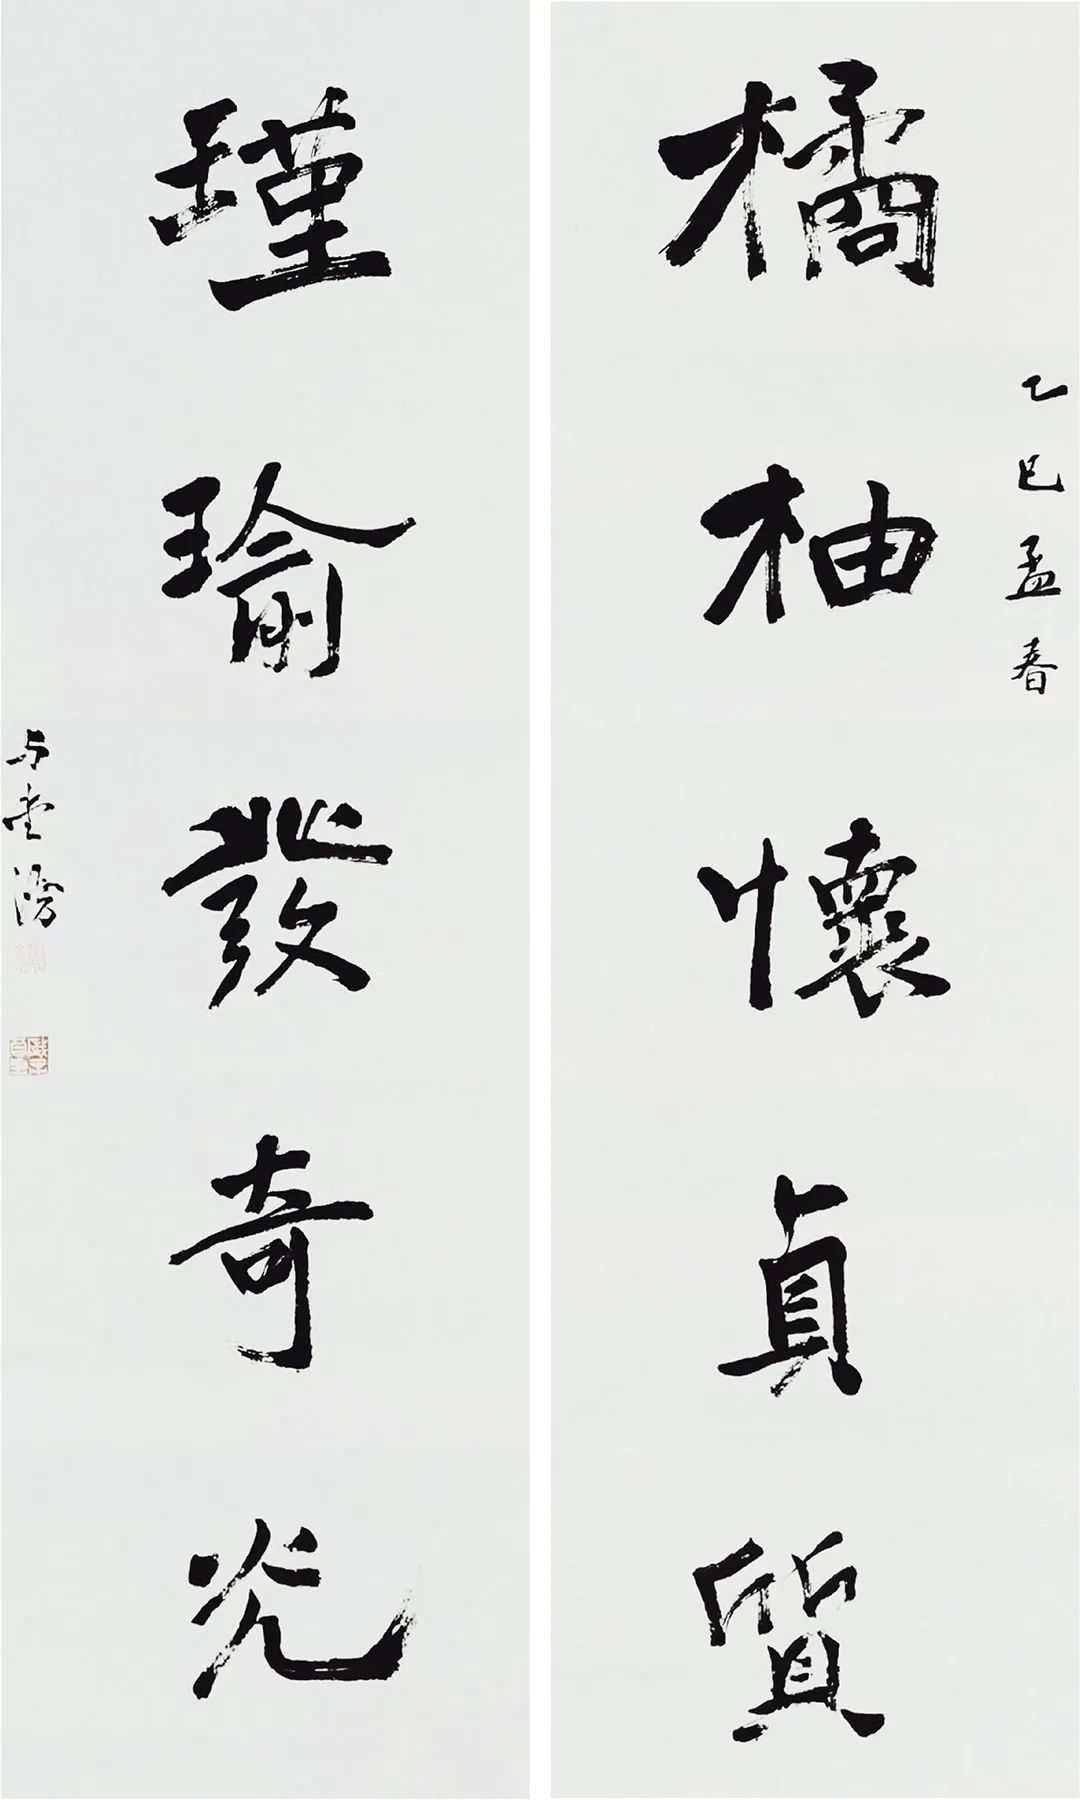 橘柚懷貞質
乙巳孟春
瑾瑜發奇光